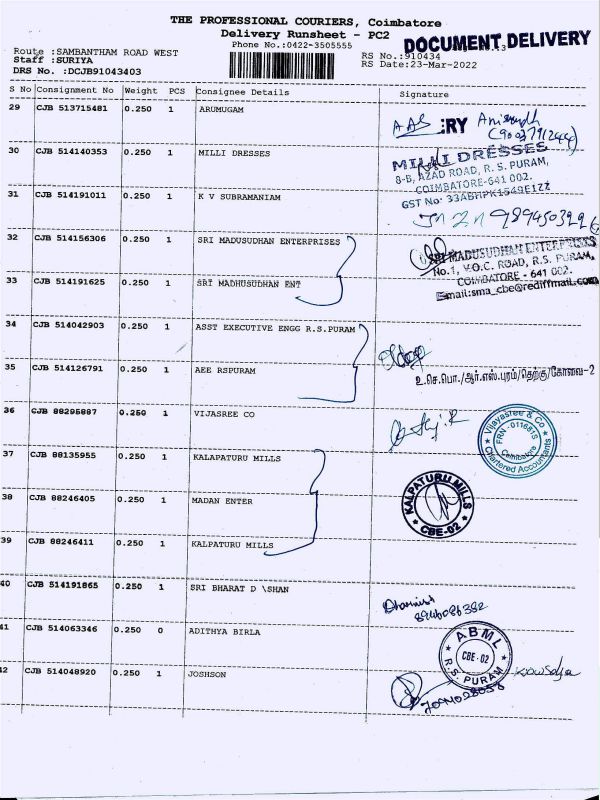 THE PROFESSIONAL COURIERS, Coimbatore
Delivery Runsheet - PC2
Phone No.:0422-3505555
DOCUMENT DELIVERY
Route :SAMBANTHAM ROAD WEST
Staff :SURIYA
DRS No. :DCJB91043403
RS No.:910434
RS Date:23-Mar-2022
S No Consignment No Weight PCS Consignee Details Signature
29 CJB 513715481 0.250 1 ARUMUGAM
30 CJB 514140353 0.250 1 MILLI DRESSES
MILLI DRESSES
8-B, AZAD ROAD, R. S. PURAM,
COIMBATORE-641 002.
31 CJB 514191011 0.250 1 K V SUBRAMANIAM
GST No: 33ABHPK1549E1ZZ
32 CJB 514156306 0.250 1 SRI MADUSUDHAN ENTERPRISES
SRI MADUSUDHAN ENTERPRISES
No.1, V.O.C. ROAD, R.S. PURAM,
COIMBATORE - 641 002.
Email:sma_cbe@rediffmail.com
33 CJB 514191625 0.250 1 SRI MADHUSUDHAN ENT
34 CJB 514042903 0.250 1 ASST EXECUTIVE ENGG R.S.PURAM
35 CJB 514126791 0.250 1 AEE RSPURAM
உ.செ.பொ./ஆர்.எஸ்.புரம்/தெற்கு/கோவை-2
36 CJB 88295887 0.250 1 VIJASREE CO
Vijayasree & Co
FRN -011681S
Coimbatore
Chartered Accountants
37 CJB 88135955 0.250 1 KALAPATURU MILLS
38 CJB 88246405 0.250 1 MADAN ENTER
KALPATURU MILLS
CBE-02
39 CJB 88246411 0.250 1 KALPATURU MILLS
40 CJB 514191865 0.250 1 SRI BHARAT D \SHAN
41 CJB 514063346 0.250 0 ADITHYA BIRLA
ABML
CBE - 02
R.S. PURAM
42 CJB 514048920 0.250 1 JOSHSON